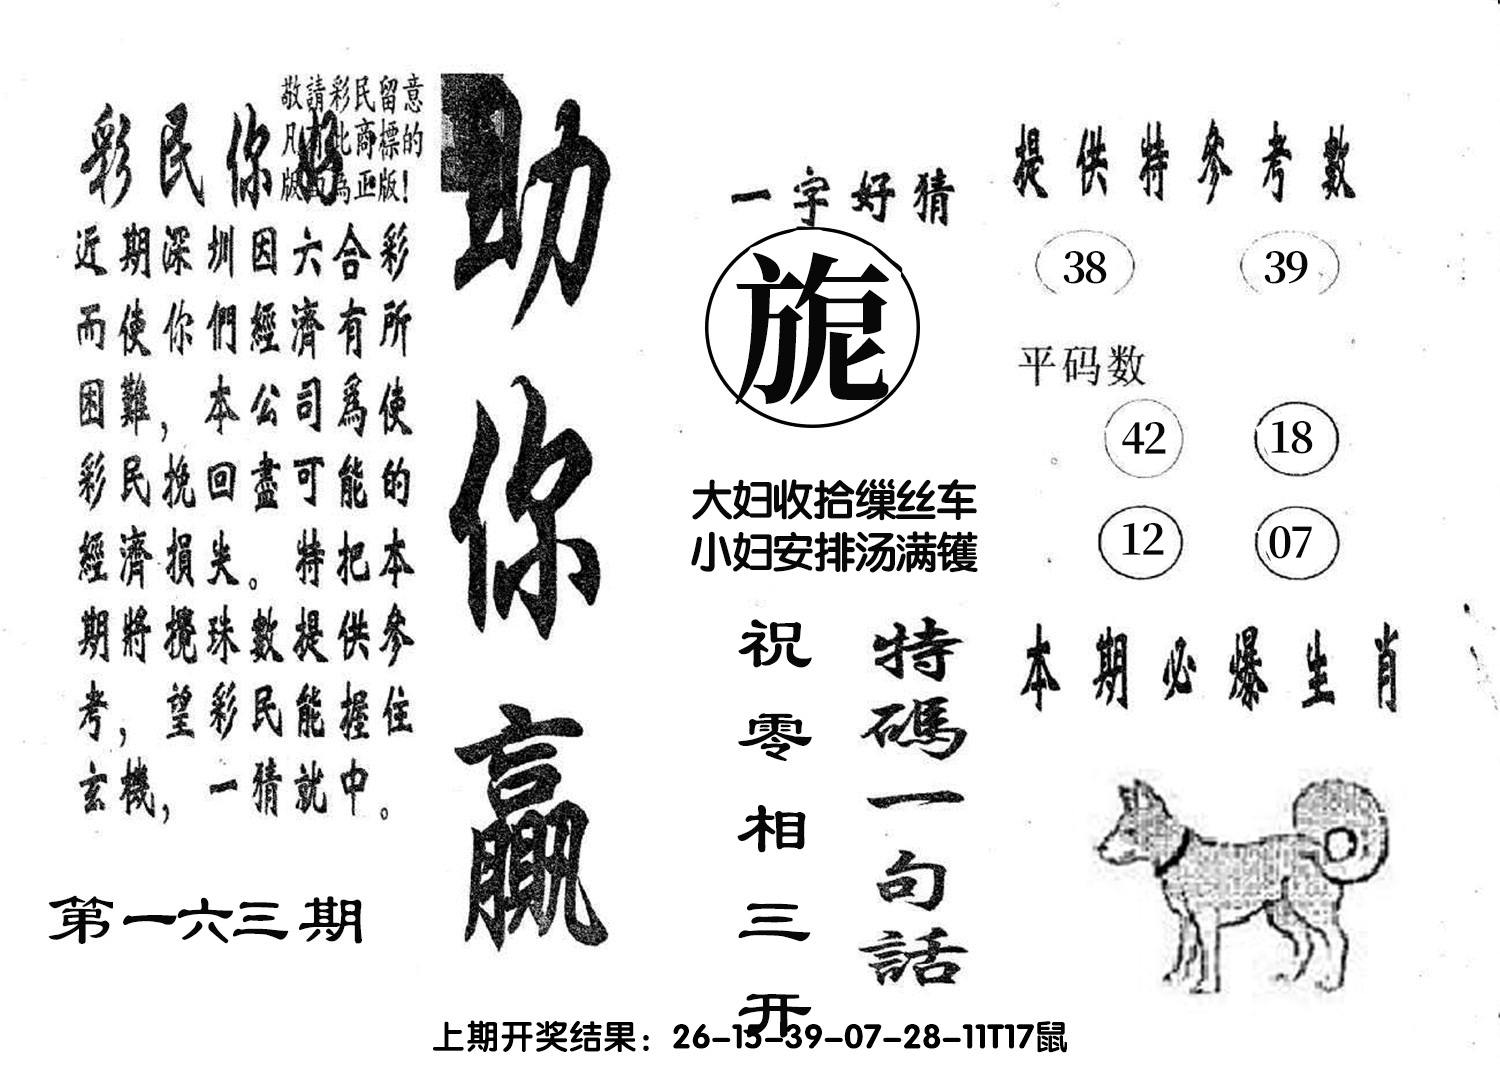 敬請彩民留意
凡有此商標的
版面為正版!
彩民你好
近期深圳因六合彩
而使你們經濟有所
困難,本公司爲使
彩民挽回盡可能的
經濟損失。特把本
期將攪珠數提供參
考,望彩民能握住
玄機,一猜就中。
第一六三期
助你贏
一字好猜
旎
大妇收拾缫丝车
小妇安排汤满镬
特碼一句話
祝零相三开
提供特參考數
38 39
平码数
42 18
12 07
本期必爆生肖
上期开奖结果：26-15-39-07-28-11T17鼠